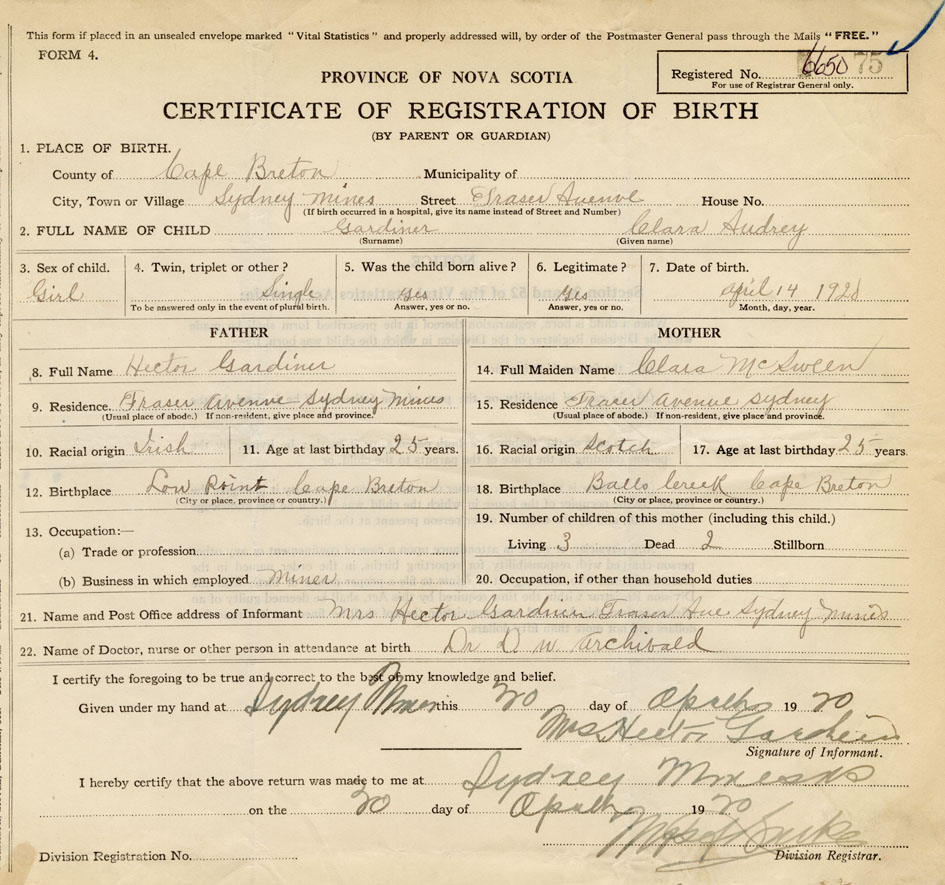 This form if placed in an unsealed envelope marked "Vital Statistics" and properly addressed will, by order of the Postmaster General pass through the Mails "FREE."
FORM 4.
PROVINCE OF NOVA SCOTIA
Registered No. 75
For use of Registrar General only.
CERTIFICATE OF REGISTRATION OF BIRTH
(BY PARENT OR GUARDIAN)
1. PLACE OF BIRTH.
County of Cape Breton Municipality of
City, Town or Village Sydney Mines Street Fraser Avenue House No.
(If birth occurred in a hospital, give its name instead of Street and Number)
2. FULL NAME OF CHILD Gardiner Clara Audrey
(Surname) (Given name)
3. Sex of child. 4. Twin, triplet or other? 5. Was the child born alive? 6. Legitimate? 7. Date of birth.
Girl Single yes yes april 14 192
To be answered only in the event of plural birth. Answer, yes or no. Answer, yes or no. Month, day, year.
FATHER MOTHER
8. Full Name Hector Gardiner 14. Full Maiden Name Clara McSween
9. Residence. Fraser Avenue Sydney Mines 15. Residence Fraser Avenue Sydney
(Usual place of abode.) If non-resident, give place and province. (Usual place of abode.) If non-resident, give place and province.
10. Racial origin Irish 11. Age at last birthday 25 years. 16. Racial origin Scotch 17. Age at last birthday 25 years.
12. Birthplace Low Point Cape Breton 18. Birthplace Balls Creek Cape Breton
(City or place, province or country.) (City or place, province or country.)
13. Occupation:— 19. Number of children of this mother (including this child.)
(a) Trade or profession Living 3 Dead 2 Stillborn
(b) Business in which employed Miner 20. Occupation, if other than household duties
21. Name and Post Office address of Informant Mrs Hector Gardiner Fraser Ave Sydney Mines
22. Name of Doctor, nurse or other person in attendance at birth Dr D W Archibald
I certify the foregoing to be true and correct to the best of my knowledge and belief.
Given under my hand at Sydney Mines this day of April 19
Mrs Hector Gardiner
Signature of Informant.
I hereby certify that the above return was made to me at Sydney Mines
on the day of April 19
Division Registration No. Division Registrar.